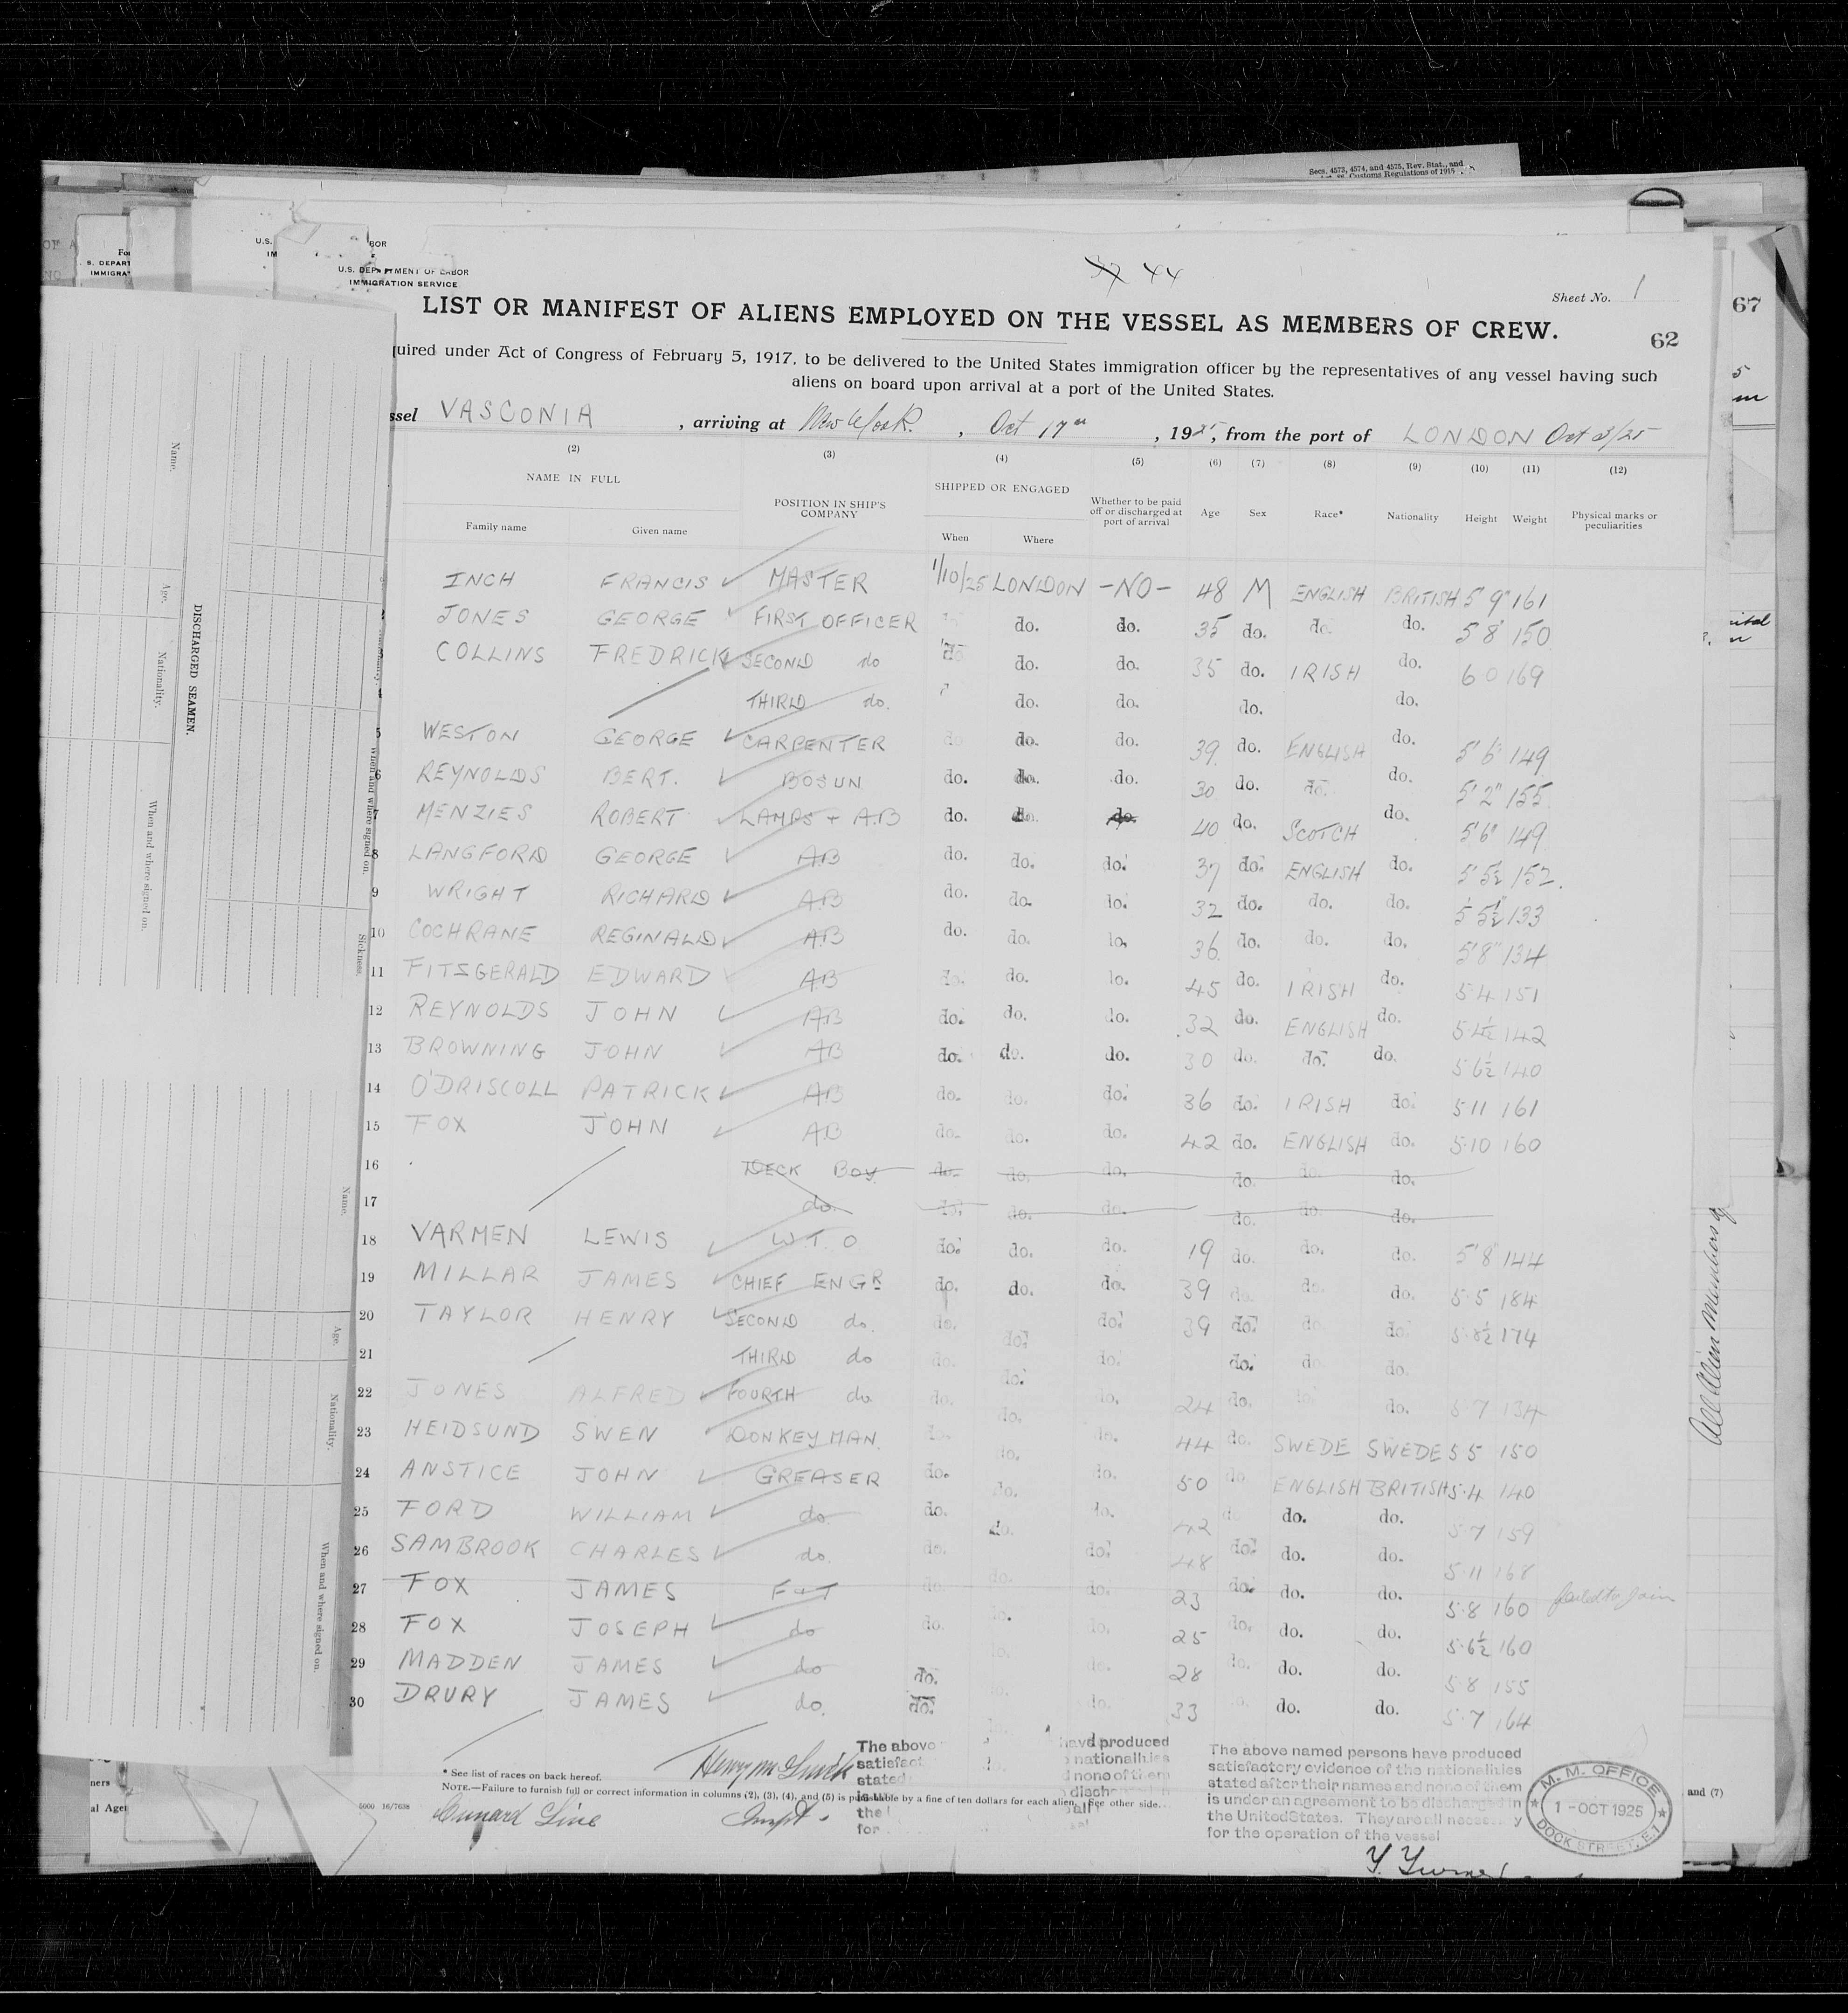 Secs. 4573, 4574, and 4575, Rev. Stat., and
Customs Regulations of 1915
U.S. DEPARTMENT OF LABOR
IMMIGRATION SERVICE
37 44
Sheet No. 1
LIST OR MANIFEST OF ALIENS EMPLOYED ON THE VESSEL AS MEMBERS OF CREW.
62
67
uired under Act of Congress of February 5, 1917, to be delivered to the United States immigration officer by the representatives of any vessel having such
aliens on board upon arrival at a port of the United States.
ssel VASCONIA, arriving at New York, Oct 17th, 1925, from the port of LONDON Oct 3/25
(2) (3) (4) (5) (6) (7) (8) (9) (10) (11) (12)
NAME IN FULL POSITION IN SHIP'S COMPANY SHIPPED OR ENGAGED Whether to be paid off or discharged at port of arrival Age Sex Race* Nationality Height Weight Physical marks or peculiarities
Family name Given name When Where
INCH FRANCIS MASTER 1/10/25 LONDON -NO- 48 M ENGLISH BRITISH 5'9" 161
JONES GEORGE FIRST OFFICER do. do. 35 do. do. do. 5 8 150
COLLINS FREDRICK SECOND do do do. do. 35 do. IRISH do. 6 0 169
THIRD do. do. do. do. do.
5 WESTON GEORGE CARPENTER do do. do. 39 do. ENGLISH do. 5'6" 149
6 REYNOLDS BERT. BOSUN do. do. do. 30 do. do. do. 5'2" 155
7 MENZIES ROBERT LAMPS + A.B do. do. do. 40 do. SCOTCH do. 5'6" 149
8 LANGFORD GEORGE A.B do. do. do. 37 do. ENGLISH do. 5'5½ 152.
9 WRIGHT RICHARD A.B do. do. lo. 32 do. do. do. 5'5½" 133
10 COCHRANE REGINALD A.B do. do. lo. 36. do. do. do. 5'8" 134
11 FITSGERALD EDWARD AB do. do. lo. 45 do. IRISH do. 5 4 151
12 REYNOLDS JOHN AB do. do. do. 32 do. ENGLISH do. 5 4½ 142
13 BROWNING JOHN AB do. do. do. 30 do. do. do. 5 6½ 140
14 O'DRISCOLL PATRICK AB do. do. do. 36 do. IRISH do. 5 11 161
15 FOX JOHN AB do. do. do. 42 do. ENGLISH do. 5.10 160
16 DECK BOY do. do. do. do. do. do.
17 do. do. do. do. do. do. do.
18 VARMEN LEWIS W.T.O do. do. do. 19 do. do. do. 5'8" 144
19 MILLAR JAMES CHIEF ENGR do. do. do. 39 do. do. do. 5.5 184
20 TAYLOR HENRY SECOND do. do. do. do. 39 do. do do. 5.8½ 174
21 THIRD do do. do. do. do. do do.
22 JONES ALFRED FOURTH do. do. do. lo. 24 do. do. 5 7 134
23 HEIDSUND SWEN DONKEY MAN. do. do. do. 44 do. SWEDE SWEDE 5 5 150
24 ANSTICE JOHN GREASER do. do. do. 50 do ENGLISH BRITISH 5.4 140
25 FORD WILLIAM do. do. do. lo. 42 do do. do. 5 7 159
26 SAMBROOK CHARLES do. do. do. 48 do. do. do. 5.11 168
27 FOX JAMES F&T do. do. 23 do. do. do. 5.8 160 failed to join
28 FOX JOSEPH do do. do. 25 do. do. do. 5.6½ 160
29 MADDEN JAMES do do. do. 28 do. do. do. 5 8 155
30 DRURY JAMES do. do. do. 33 do. do. 5.7 164
* See list of races on back hereof.
NOTE.—Failure to furnish full or correct information in columns (2), (3), (4), and (5) is punishable by a fine of ten dollars for each alien. See other side.
Cunard Line
The above named persons have produced
satisfactory evidence of the nationalities
stated after their names and none of them
is under an agreement to be discharged in
the United States. They are all necessary
for the operation of the vessel
M. M. OFFICE
1 - OCT 1925
DOCK STREET, E.1
DISCHARGED SEAMEN.
Name.
Age.
Nationality.
When and where signed on.
Sickness.
Name.
Age.
Nationality.
When and where signed on.
All Alien Members of
and (7)